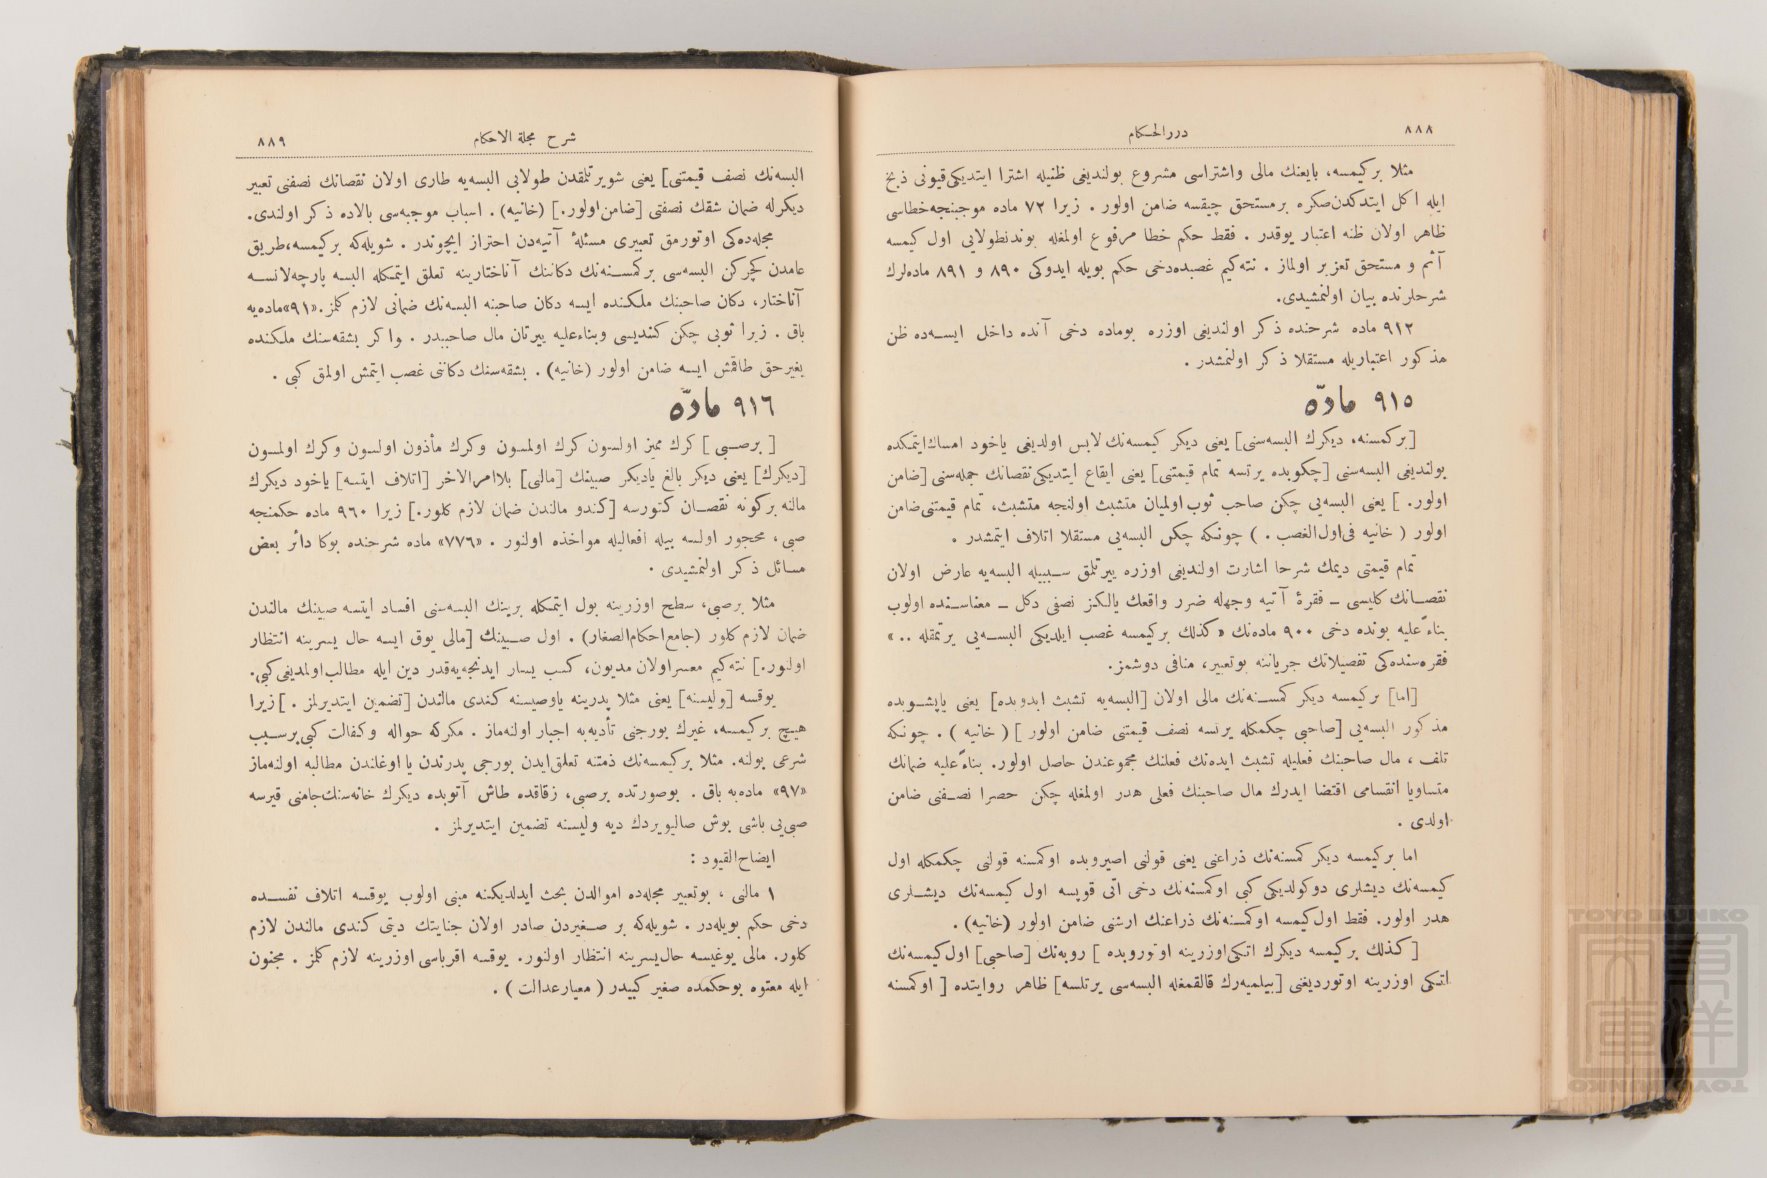 ٨٨٨
دررالحكام
مثلا بركيمسه، بايعنك مالى واشتراسى مشروع بولنديغى ظنيله اشترا ايتديكى قيونى ذبح
ايله اكل ايتدكدن صكره برمستحق چيقسه ضامن اولور . زيرا ٧٢ ماده موجبنجه خطاسى
ظاهر اولان ظنه اعتبار يوقدر . فقط حكم خطا مرفوع اولمغله بوندنطولايى اول كيمسه
آثم و مستحق تعزير اولماز . نته كيم غصبده دخى حكم بويله ايدوكى ٨٩٠ و ٨٩١ ماده لرك
شرحلرنده بيان اولنمشيدى.
٩١٢ ماده شرحنده ذكر اولنديغى اوزره بوماده دخى آنده داخل ايسه ده ظن
مذكور اعتباريله مستقلا ذكر اولنمشدر .
٩١٥ مادّه
[بركمسنه، ديكرك البسه سنى] يعنى ديكر كيمسه نك لابس اولديغى ياخود امساك ايتمكده
بولنديغى البسه سنى [چكوبده يرتسه تمام قيمتنى] يعنى ايقاع ايتديكى نقصانك جمله سنى [ضامن
اولور. ] يعنى البسه يى چكن صاحب ثوب اولميان متشبث اولنجه متشبث، تمام قيمتنى ضامن
اولور ( خانيه فى اول الغصب . ) چونكه چكن البسه يى مستقلا اتلاف ايتمشدر .
تمام قيمتى ديمك شرحا اشارت اولنديغى اوزره ييرتلمق سببيله البسه يه عارض اولان
نقصانك كليسى ــ فقرهٔ آتيه وجهله ضرر واقعك يالكيز نصفى دكل ــ معناسنده اولوب
بناءً عليه بونده دخى ٩٠٠ ماده نك « كذلك بركيمسه غصب ايلديكى البسه يى يرتمقله .. »
فقره سنده كى تفصيلاتك جرياننه بوتعبير، منافى دوشمز.
[اما] بركيمسه ديكر كمسنه نك مالى اولان [البسه يه تشبث ايدوبده] يعنى ياپشوبده
مذكور البسه يى [صاحبى چكمكله يرتسه نصف قيمتنى ضامن اولور ] ( خانيه ) . چونكه
تلف ، مال صاحبنك فعليله تشبث ايده نك فعلنك مجموعندن حاصل اولور. بناءً عليه ضمانك
متساويا انقسامى اقتضا ايدرك مال صاحبنك فعلى هدر اولمغله چكن حصرا نصفنى ضامن
اولدى .
اما بركيمسه ديكر كمسنه نك ذراعنى يعنى قولنى اصيروبده اوكمسنه قولنى چكمكله اول
كيمسه نك ديشلرى دوكولديكى كبى اوكمسنه نك دخى اتى قوپسه اول كيمسه نك ديشلرى
هدر اولور. فقط اول كيمسه اوكمسنه نك ذراعنك ارشنى ضامن اولور (خانيه) .
[ كذلك بركيمسه ديكرك اتكى اوزرينه اوتوروبده ] روبه نك [صاحبى] اول كيمسه نك
اتكى اوزرينه اوتورديغنى [بيلميه رك قالقمغله البسه سى يرتلسه] ظاهر روايتده [ اوكمسنه
شرح مجلة الاحكام
٨٨٩
البسه نك نصف قيمتنى] يعنى شويرتلمقدن طولايى البسه يه طارى اولان نقصانك نصفنى تعبير
ديكرله ضمان شقك نصفنى [ضامن اولور.] (خانيه) . اسباب موجبه سى بالاده ذكر اولندى.
مجله ده كى اوتورمق تعبيرى مسئلهٔ آتيه دن احتراز ايچوندر . شويله كه بركيمسه، طريق
عامدن كچركن البسه سى بركمسنه نك دكاننك آناختارينه تعلق ايتمكله البسه پارچه لانسه
آناختار، دكان صاحبنك ملكنده ايسه دكان صاحبنه البسه نك ضمانى لازم كلمز. «٩١» ماده يه
باق . زيرا ثوبى چكن كنديسى وبناءعليه ييرتان مال صاحبيدر . واكر بشقه سنك ملكنده
بغيرحق طاقمش ايسه ضامن اولور (خانيه) . بشقه سنك دكاننى غصب ايتمش اولمق كبى .
٩١٦ مادّه
[ برصبى ] كرك مميز اولسون كرك اولمسون وكرك مأذون اولسون وكرك اولمسون
[ديكرك] يعنى ديكر بالغ ياديكر صبينك [مالنى] بلاامرالاخر [اتلاف ايتسه] ياخود ديكرك
مالنه بركونه نقصان كتورسه [كندو مالندن ضمان لازم كلور.] زيرا ٩٦٠ ماده حكمنجه
صبى، محجور اولسه بيله افعاليله مواخذه اولنور . «٧٧٦» ماده شرحنده بوكا دائر بعض
مسائل ذكر اولنمشيدى .
مثلا برصبى، سطح اوزرينه بول ايتمكله برينك البسه سنى افساد ايتسه صبينك مالندن
ضمان لازم كلور (جامع احكام الصغار) . اول صبينك [مالى يوق ايسه حال يسرينه انتظار
اولنور.] نته كيم معسراولان مديون، كسب يسار ايدنجه يه قدر دين ايله مطالب اولمديغى كبى.
يوقسه [وليسنه] يعنى مثلا پدرينه ياوصيسنه كندى مالندن [تضمين ايتديرلمز . ] زيرا
هيچ بركيمسه، غيرك بورجنى تأديه يه اجبار اولنه ماز . مكركه حواله وكفالت كبى برسبب
شرعى بولنه. مثلا بركيمسه نك ذمتنه تعلق ايدن بورجى پدرندن يا اوغلندن مطالبه اولنه ماز
«٩٧» ماده يه باق . بوصورتده برصبى، زقاقده طاش آتوبده ديكرك خانه سنك جامنى قيرسه
صبى يى باشى بوش صاليويردك ديه وليسنه تضمين ايتديرلمز .
ايضاح القيود :
١ مالنى ، بوتعبير مجله ده اموالدن بحث ايدلديكنه مبنى اولوب يوقسه اتلاف نفسده
دخى حكم بويله در . شويله كه بر صغيردن صادر اولان جنايتك ديتى كندى مالندن لازم
كلور. مالى يوغيسه حال يسرينه انتظار اولنور. يوقسه اقرباسى اوزرينه لازم كلمز . مجنون
ايله معتوه بوحكمده صغير كبيدر ( معيار عدالت ) .
TOYO BUNKO
東洋文庫
TOYO BUNKO